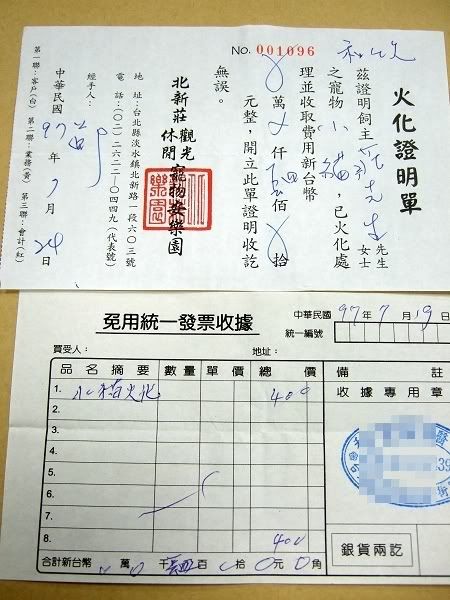 火化證明單
NO. 001096
茲證明飼主 先生
女士
之寵物小貓,已火化處
理並收取費用新台幣
萬 仟 肆 佰 拾
元整,開立此單證明收訖
無誤。
北新莊 觀光
休閒 寵物安樂園
地 址:台北縣淡水鎮北新路一段六〇三號
電 話:(〇二)二六二二一〇四四九(代表號)
經手人:
中華民國 97 年 7 月 24 日
第一聯:客戶(白) 第二聯:業務(黃) 第三聯:會計(紅)
免用統一發票收據
中華民國 97 年 7 月 19 日
統一編號
買受人: 地址:
品名摘要 數量 單價 總價 備註
1. 小猫火化 400 收據專用章
2.
3.
4.
5.
6.
7.
8. 400
合計新台幣 萬 千 肆 百 拾 0 元 0 角
銀貨兩訖